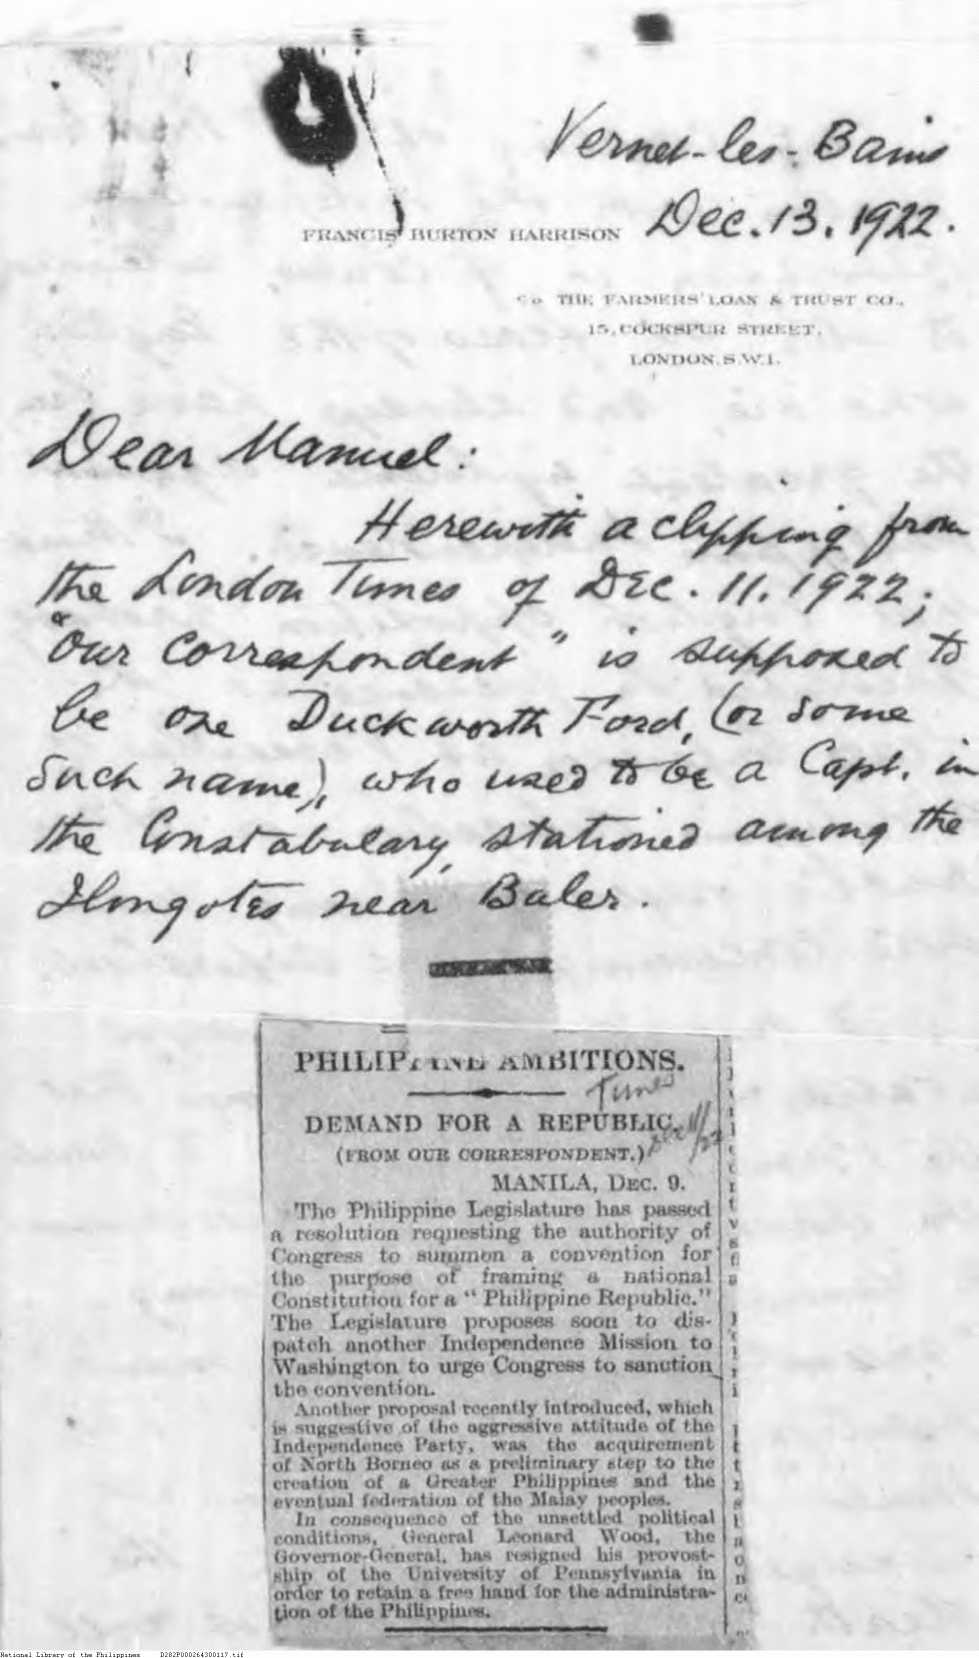 Vernet-les-Bains
Dec. 13. 1922.
FRANCIS BURTON HARRISON
C/o THE FARMERS' LOAN & TRUST CO.,
15, COCKSPUR STREET,
LONDON, S.W.1.
Dear Manuel:
Herewith a clipping from
the London Times of Dec. 11. 1922;
"our correspondent" is supposed to
be one Duckworth Ford, (or some
such name), who used to be a Capt. in
the Constabulary, stationed among the
Ilongotes near Baler.
PHILIPPINE AMBITIONS.
Times
DEMAND FOR A REPUBLIC.
Dec 11/22
(FROM OUR CORRESPONDENT.)
MANILA, DEC. 9.
The Philippine Legislature has passed
a resolution requesting the authority of
Congress to summon a convention for
the purpose of framing a national
Constitution for a "Philippine Republic."
The Legislature proposes soon to dis-
patch another Independence Mission to
Washington to urge Congress to sanction
the convention.
Another proposal recently introduced, which
is suggestive of the aggressive attitude of the
Independence Party, was the acquirement
of North Borneo as a preliminary step to the
creation of a Greater Philippines and the
eventual federation of the Malay peoples.
In consequence of the unsettled political
conditions, General Leonard Wood, the
Governor-General, has resigned his provost-
ship of the University of Pennsylvania in
order to retain a free hand for the administra-
tion of the Philippines.
National Library of the Philippines D282P000264300117.tif